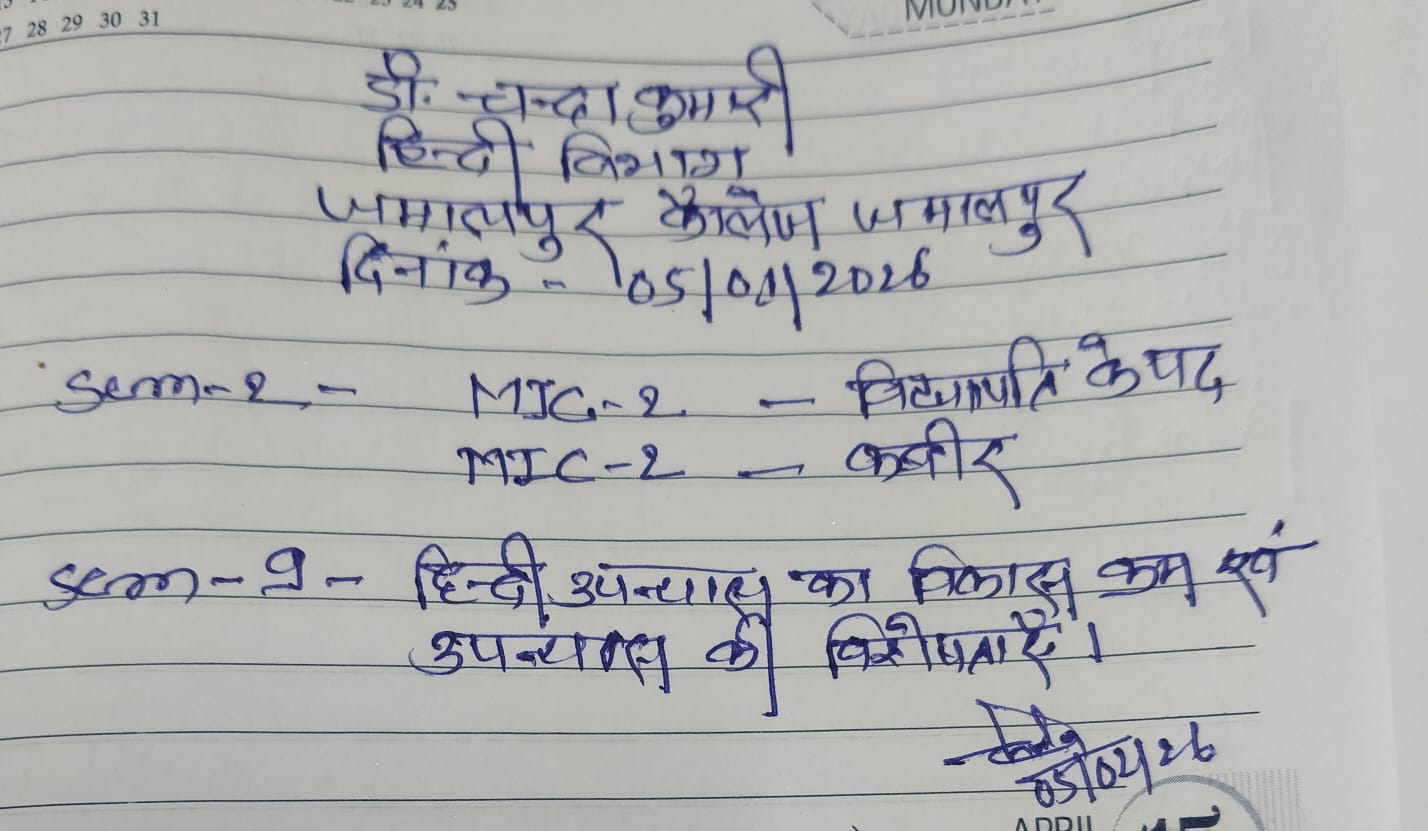 27 28 29 30 31
डॉ. चन्दा कुमारी
हिन्दी विभाग
जमालपुर कॉलेज जमालपुर
दिनांक - 05/02/2026
Sem-2 - MJC-2 - विद्यापति के पद
MIC-2 - कबीर
Sem - 9 - हिन्दी उपन्यास का विकास क्रम एवं
उपन्यास की विशेषताएँ।
05/02/26
APRIL